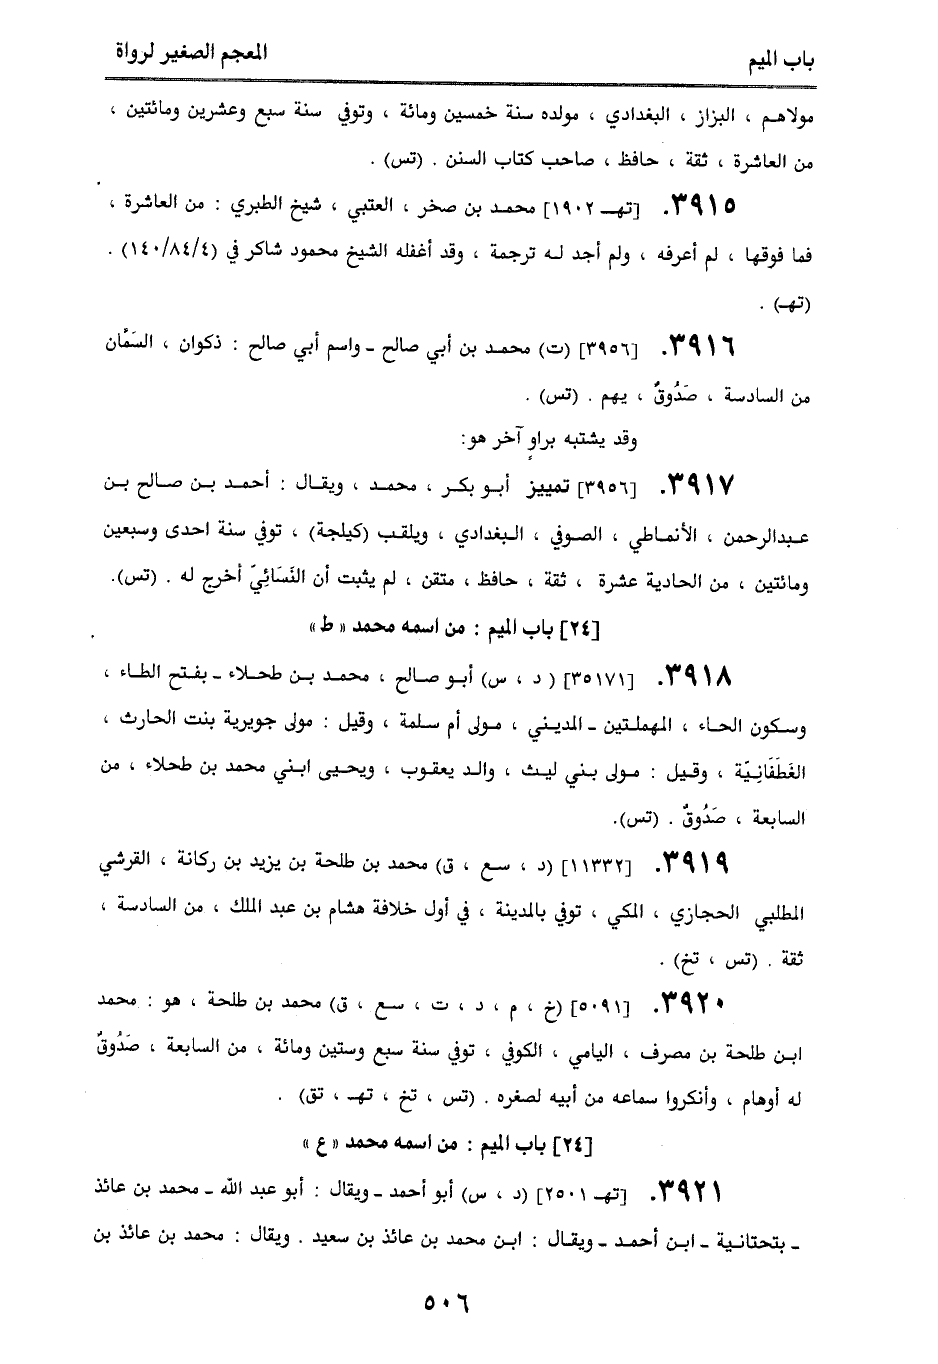 باب الميم
المعجم الصغير لرواة
مولاهم ، البزاز ، البغدادي ، مولده سنة خمسين ومائة ، وتوفي سنة سبع وعشرين ومائتين ،
من العاشرة ، ثقة ، حافظ ، صاحب كتاب السنن . (تس) .
٣٩١٥. [تهـ ١٩٠٢] محمد بن صخر ، العتبي ، شيخ الطبري : من العاشرة ،
فما فوقها ، لم أعرفه ، ولم أجد له ترجمة ، وقد أغفله الشيخ محمود شاكر في (١٤٠/٨٤/٤) .
(تهـ) .
٣٩١٦. [٣٩٥٦] (ت) محمد بن أبي صالح ـ واسم أبي صالح : ذكوان ، السَمَّان
من السادسة ، صَدُوقٌ ، يهم . (تس) .
وقد يشتبه براوٍ آخر هو:
٣٩١٧. [٣٩٥٦] تمييز أبو بكر ، محمد ، ويقال : أحمد بن صالح بن
عبدالرحمن ، الأنماطي ، الصوفي ، البغدادي ، ويلقب (كيلجة) ، توفي سنة احدى وسبعين
ومائتين ، من الحادية عشرة ، ثقة ، حافظ ، متقن ، لم يثبت أن النَسَائِيّ أخرج له . (تس).
[٢٤] باب الميم : من اسمه محمد «ط»
٣٩١٨. [٣٥١٧١] ( د ، س) أبو صالح ، محمد بن طحلاء ـ بفتح الطاء ،
وسكون الحاء ، المهملتين ـ المديني ، مولى أم سلمة ، وقيل : مولى جويرية بنت الحارث ،
الغَطَفَانِيّة ، وقيل : مولى بني ليث ، والد يعقوب ، ويحيى ابني محمد بن طحلاء ، من
السابعة ، صَدُوقٌ . (تس).
٣٩١٩. [١١٣٣٢] (د ، سع ، ق) محمد بن طلحة بن يزيد بن ركانة ، القرشي
المطلبي الحجازي ، المكي ، توفي بالمدينة ، في أول خلافة هشام بن عبد الملك ، من السادسة ،
ثقة . (تس ، تخ) .
٣٩٢٠. [٥٠٩١] (خ ، م ، د ، ت ، سع ، ق) محمد بن طلحة ، هو : محمد
ابن طلحة بن مصرف ، اليامي ، الكوفي ، توفي سنة سبع وستين ومائة ، من السابعة ، صَدُوقٌ
له أوهام ، وأنكروا سماعه من أبيه لصغره . (تس ، تخ ، تهـ ، تق) .
[٢٤] باب الميم : من اسمه محمد «ع»
٣٩٢١. [تهـ ٢٥٠١] (د ، س) أبو أحمد ـ ويقال : أبو عبد الله ـ محمد بن عائذ
ـ بتحتانية ـ ابن أحمد ـ ويقال : ابن محمد بن عائذ بن سعيد . ويقال : محمد بن عائذ بن
٥٠٦